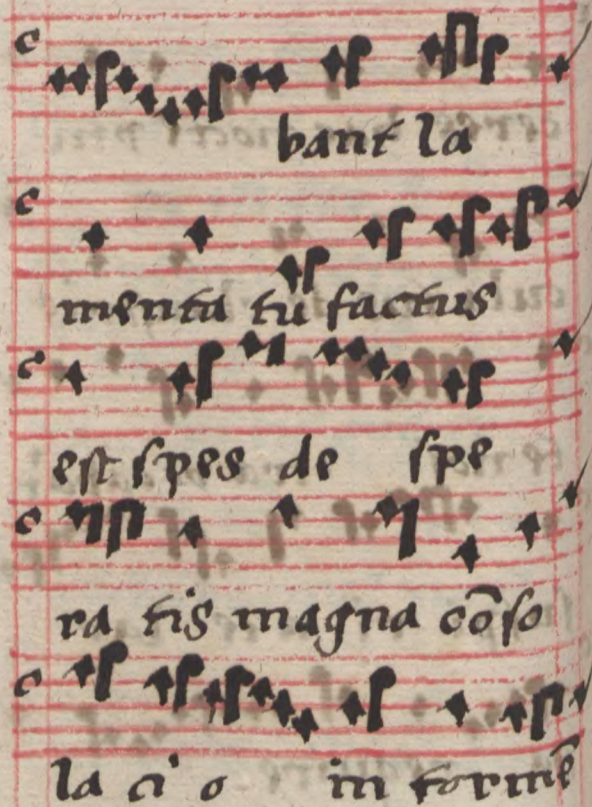 bant la
menta tu factus
est spes de spe
ra tis magna cōso
la ci o in tormē